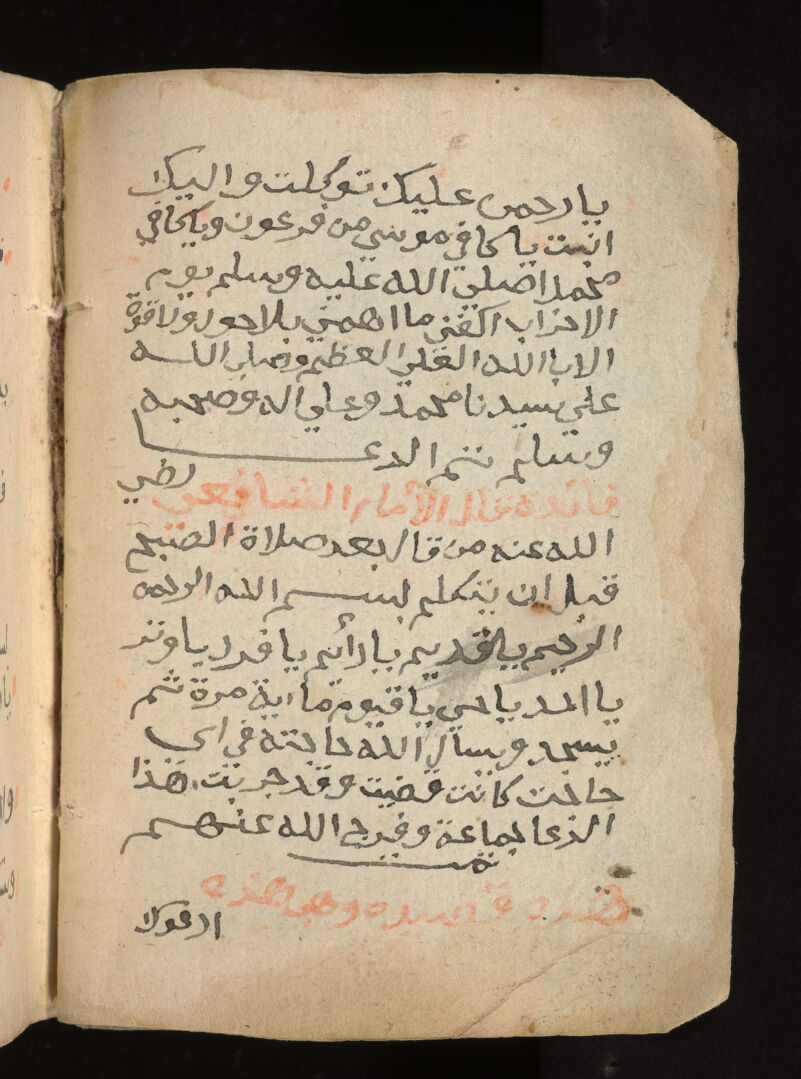 يارحمن عليك توكلت واليك
انبت ياكافي موسي من فرعون وياكافي
محمدا صلي الله عليه وسلم يوم
الاحزاب اكفني ما اهمني بلاحول ولاقوة
الا بالله العلي العظيم وصلي الله
علي سيدنا محمد وعلي اله وصحبه
وسلم تم الدعا
فائدة قال الأمام الشافعي رضي
الله عنه من قال بعد صلاة الصبح
قبل ان يتكلم بسم الله الرحمن
الرحيم ياقديم يادأيم يافرد ياوتر
يا احد ياحي ياقيوم ماية مرة ثم
يسجد ويسأل الله حاجته في اي
حاجت كانت قضيت وقد جربت هذا
الدعا جماعة وفرج الله عنهم
تمت
هذه قصيده وهي هذه
ادعوك